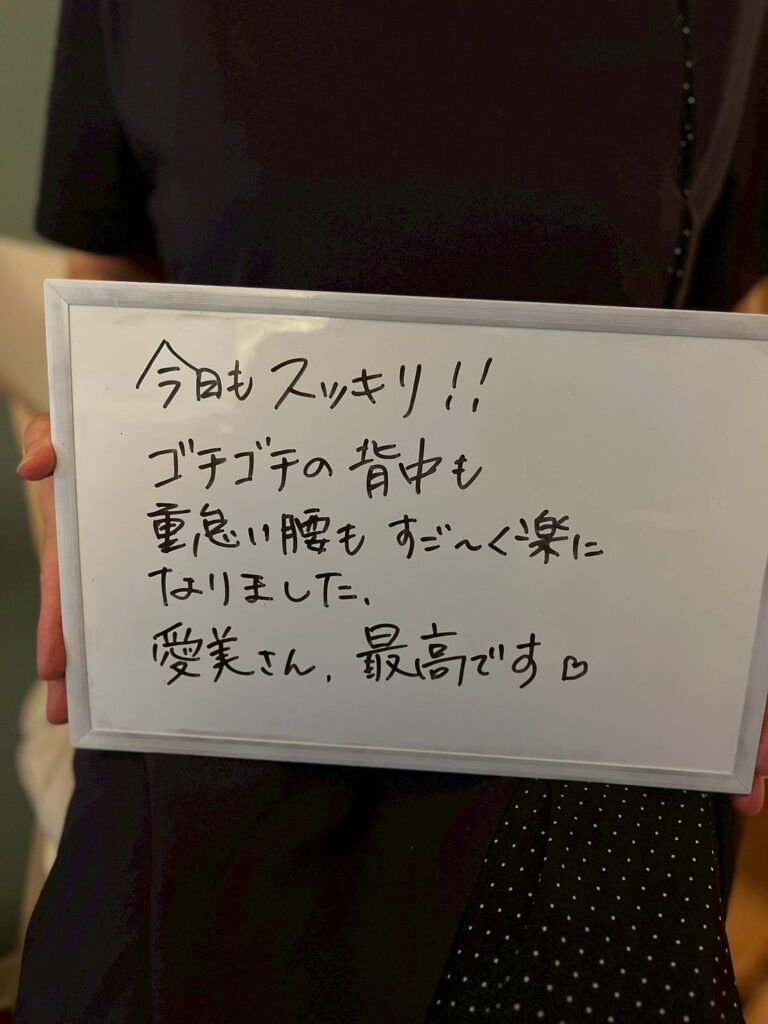 今日もスッキリ!!
ゴチゴチの背中も
重怠い腰もすご〜く楽に
なりました、
愛美さん、最高です♡